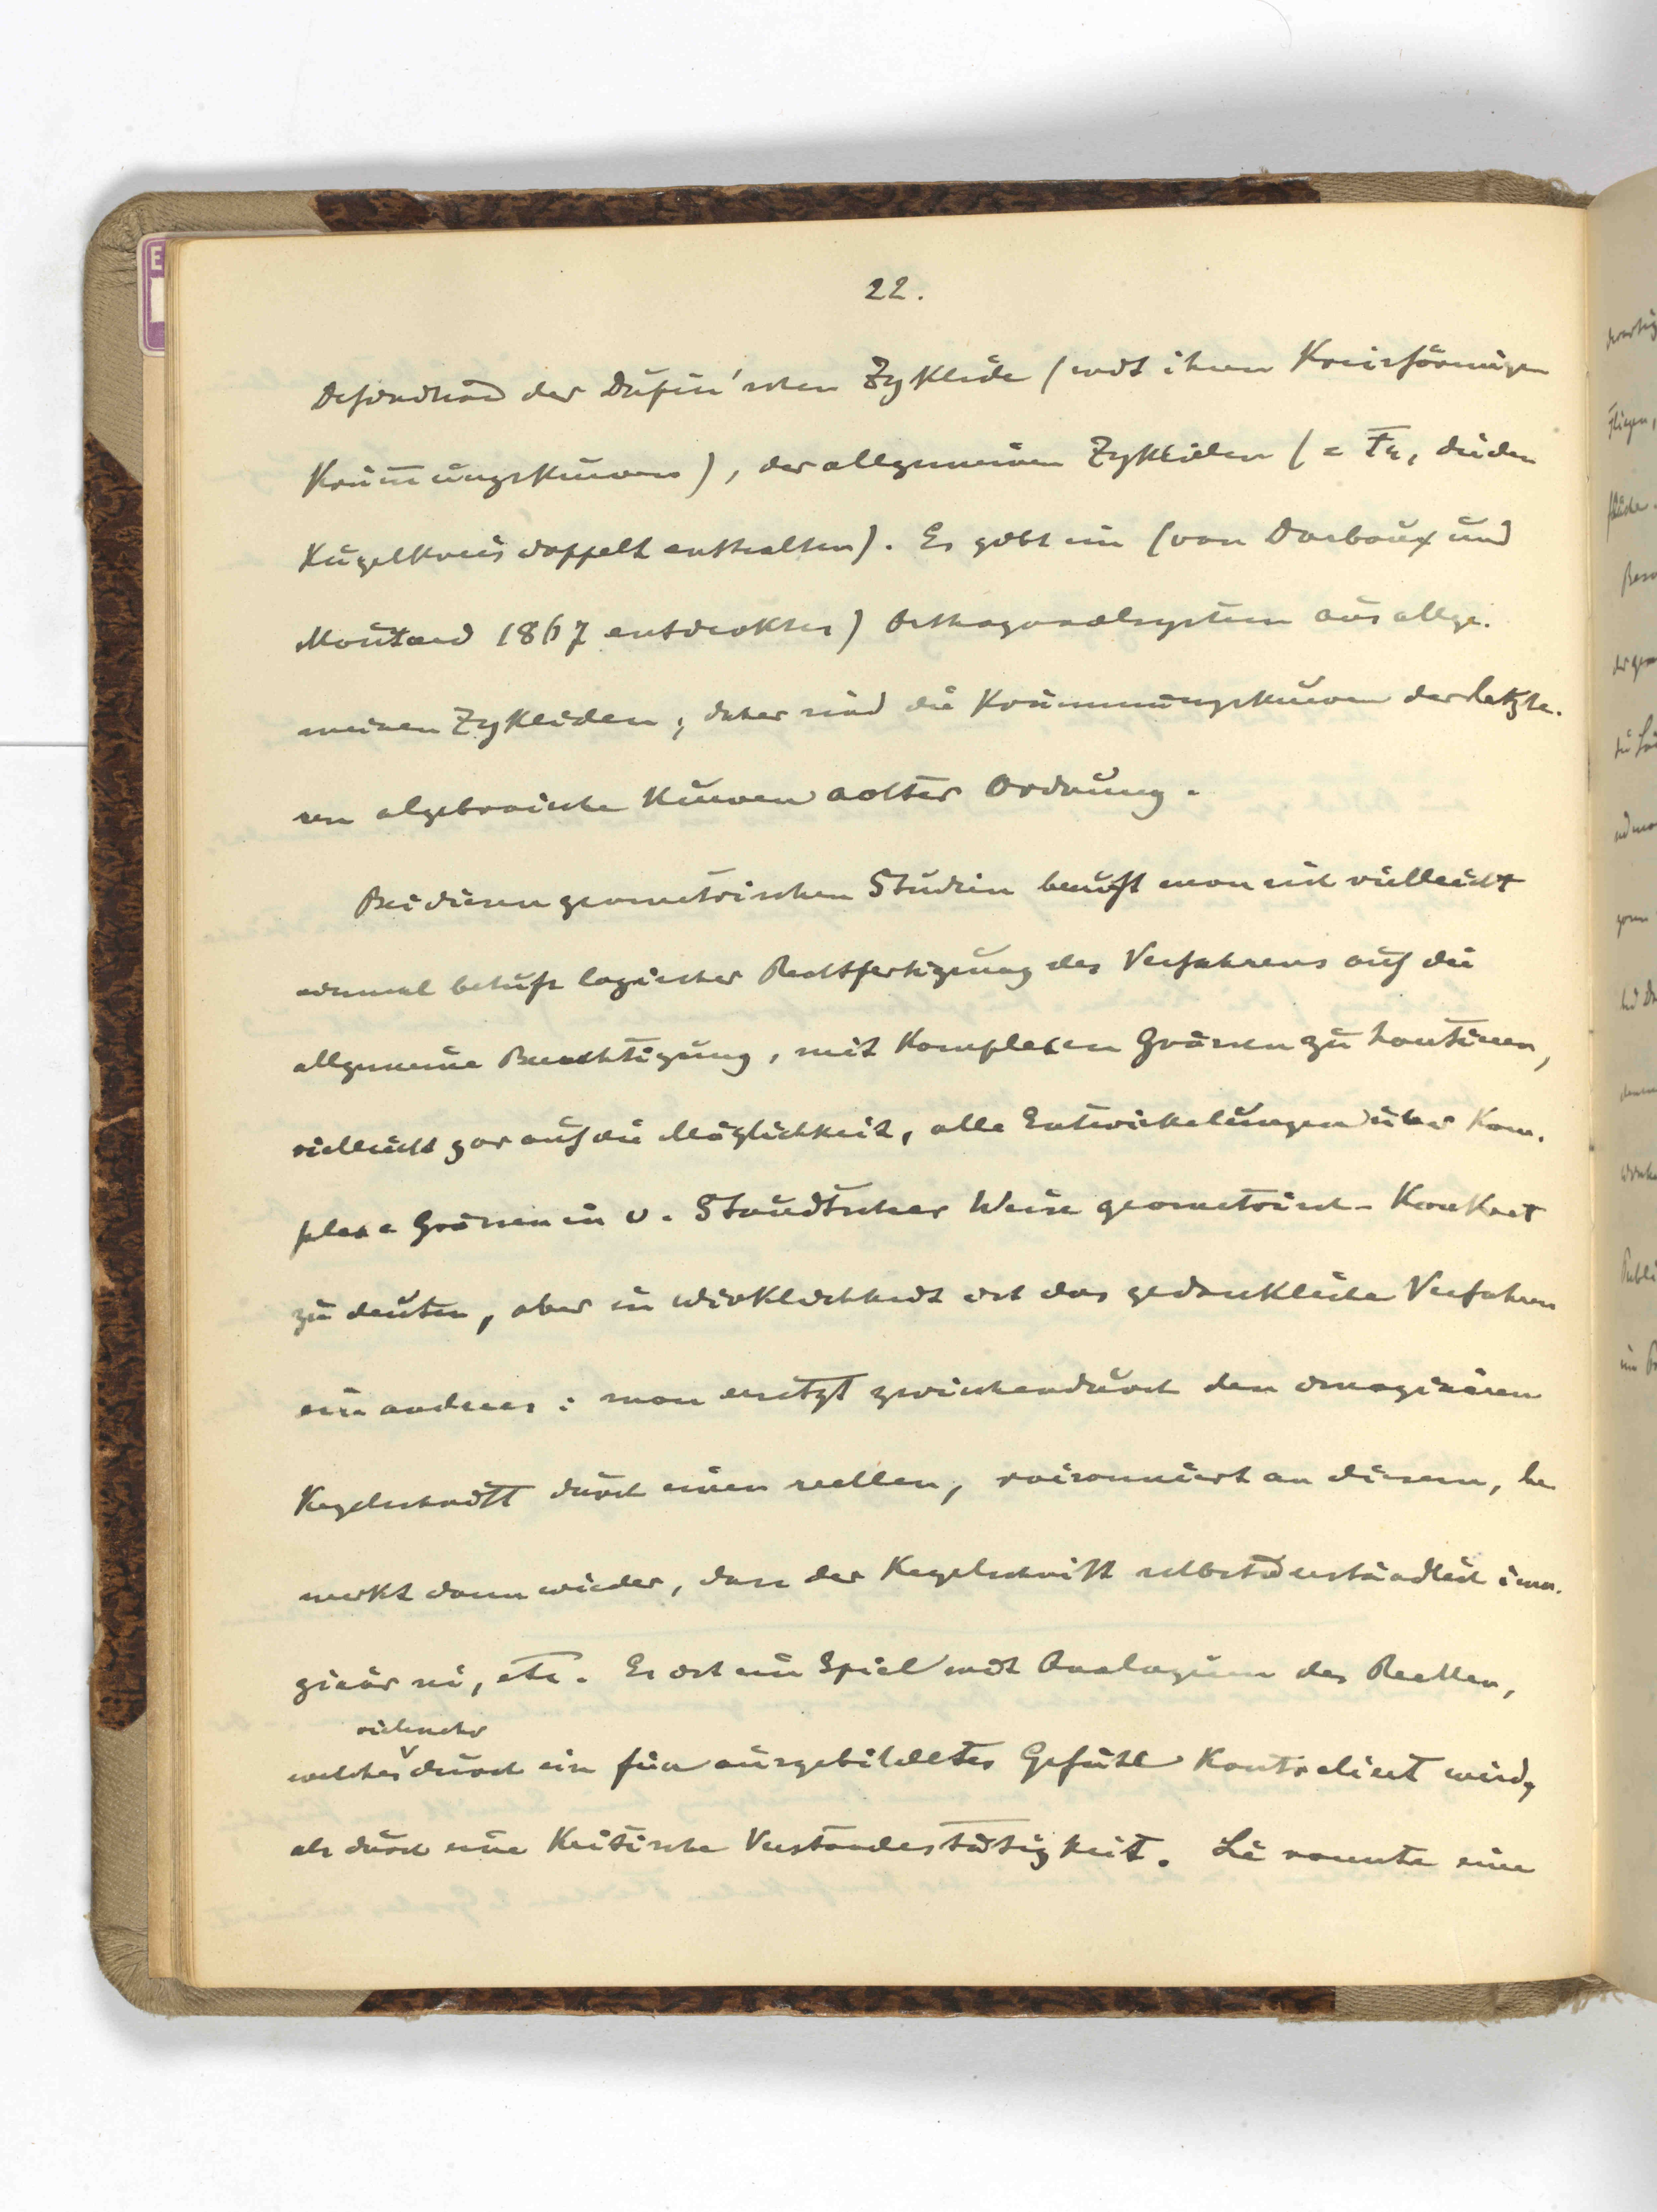 22.
Definition der Dupin'schen Zyklide (mit ihren Kreisförmigen
Krüm̅ungskurven), der allgemeinen Zykliden (= F4, die den
Kugelkreis doppelt enthalten). Es gibt ein (von Darboux und
Moutard 1867 entdecktes) Orthogonalsystem aus allge-
meinen Zykliden; daher sind die Krümmungskurven der letzte-
ren algebraische Kurven achter Ordnung.
Bei diesen geometrischen Studien beruft man sich vielleicht
einmal behufs logischer Rechtfertigung des Verfahrens auf die
allgemeine Berechtigung, mit Komplexen Grössen zu hantieren,
vielleicht gar auf die Möglichkeit, alle Entwickelungen über Kom-
plexe Grössen in v. Staudtscher Weise geometrisch-Konkret
zu deuten, aber in Wirklichkeit ist das gedankliche Verfahren
ein anderes: man ersetzt zwischendurch den imaginären
Kegelschnitt durch einen reellen, raisonniert an diesem, be
merkt dann wieder, dass der Kegelschnitt selbstverständlich ima-
ginär sei, etc. Es ist ein Spiel mit Analogieen des Reellen,
vielmehr
welches durch ein fein ausgebildetes Gefühl Kontroliert wird,
als durch eine Kritische Verstandestätigkeit. Lie nannte eine